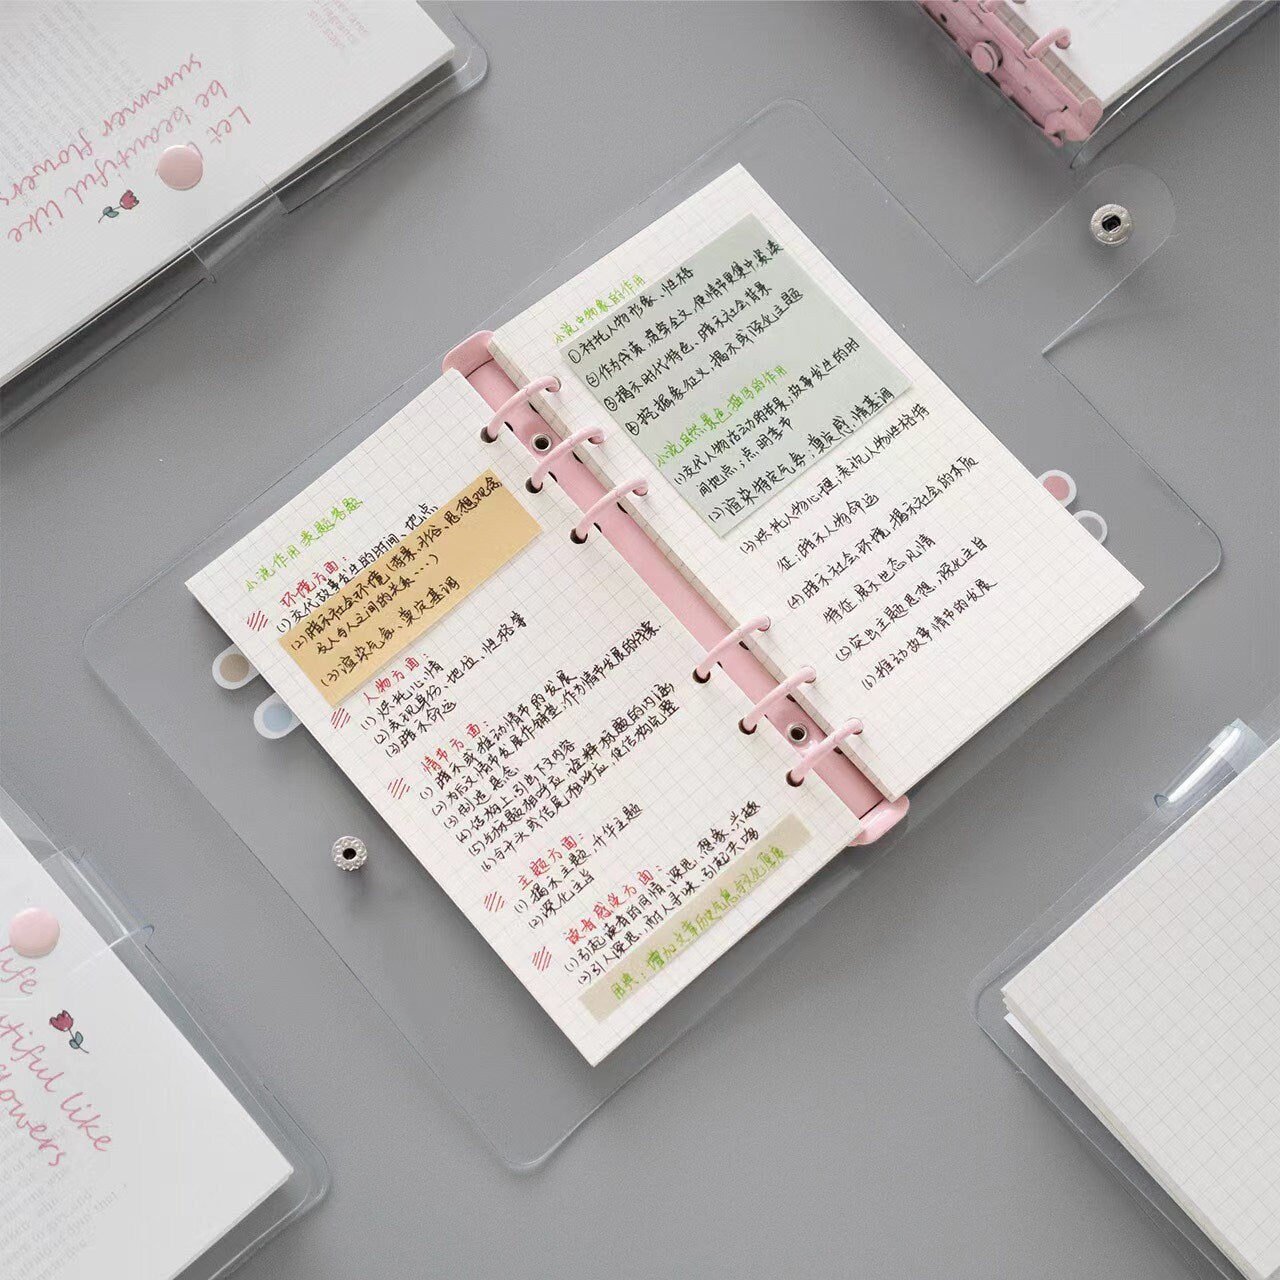 小说作用类题答题
环境方面：
(1)交代故事发生的时间、地点
(2)暗示社会环境(背景、习俗、思想观念
及人与人之间的关系…)
(3)渲染气氛、奠定基调
人物方面：
(1)烘托心情
(2)表现身份、地位、性格等
(3)暗示命运
情节方面：
(1)暗示或推动情节的发展
(2)为后文情节发展作铺垫，作为情节发展的线索.
(3)制造悬念
(4)结构上，引出下文内容
(5)与标题相呼应，诠释标题的内涵
(6)与开头或结尾相呼应，使结构完整
主题方面：
(1)揭示主题，升华主题
(2)深化主旨
读者感受方面：
(1)引起读者的同情，深思，想象，兴趣
(2)引人深思，耐人寻味，引起共鸣
用典：增加文章历史气息与文化厚度
小说中物象的作用
①衬托人物形象、性格
②作为线索，贯穿全文，使情节更集中，紧凑
③揭示时代特色、暗示社会背景
④挖掘象征义，揭示或深化主题
小说自然景色描写的作用
(1)交代人物活动的背景，故事发生的时
间地点；点明季节
(2)渲染特定气氛；奠定感情基调
(3)烘托人物心理，表现人物性格特
征；暗示人物命运
(4)暗示社会环境，揭示社会的本质
特征，展示世态风情
(5)突出主题思想，深化主旨
(6)推动故事情节的发展
be beautiful like
summer flowers
life
like
flowers